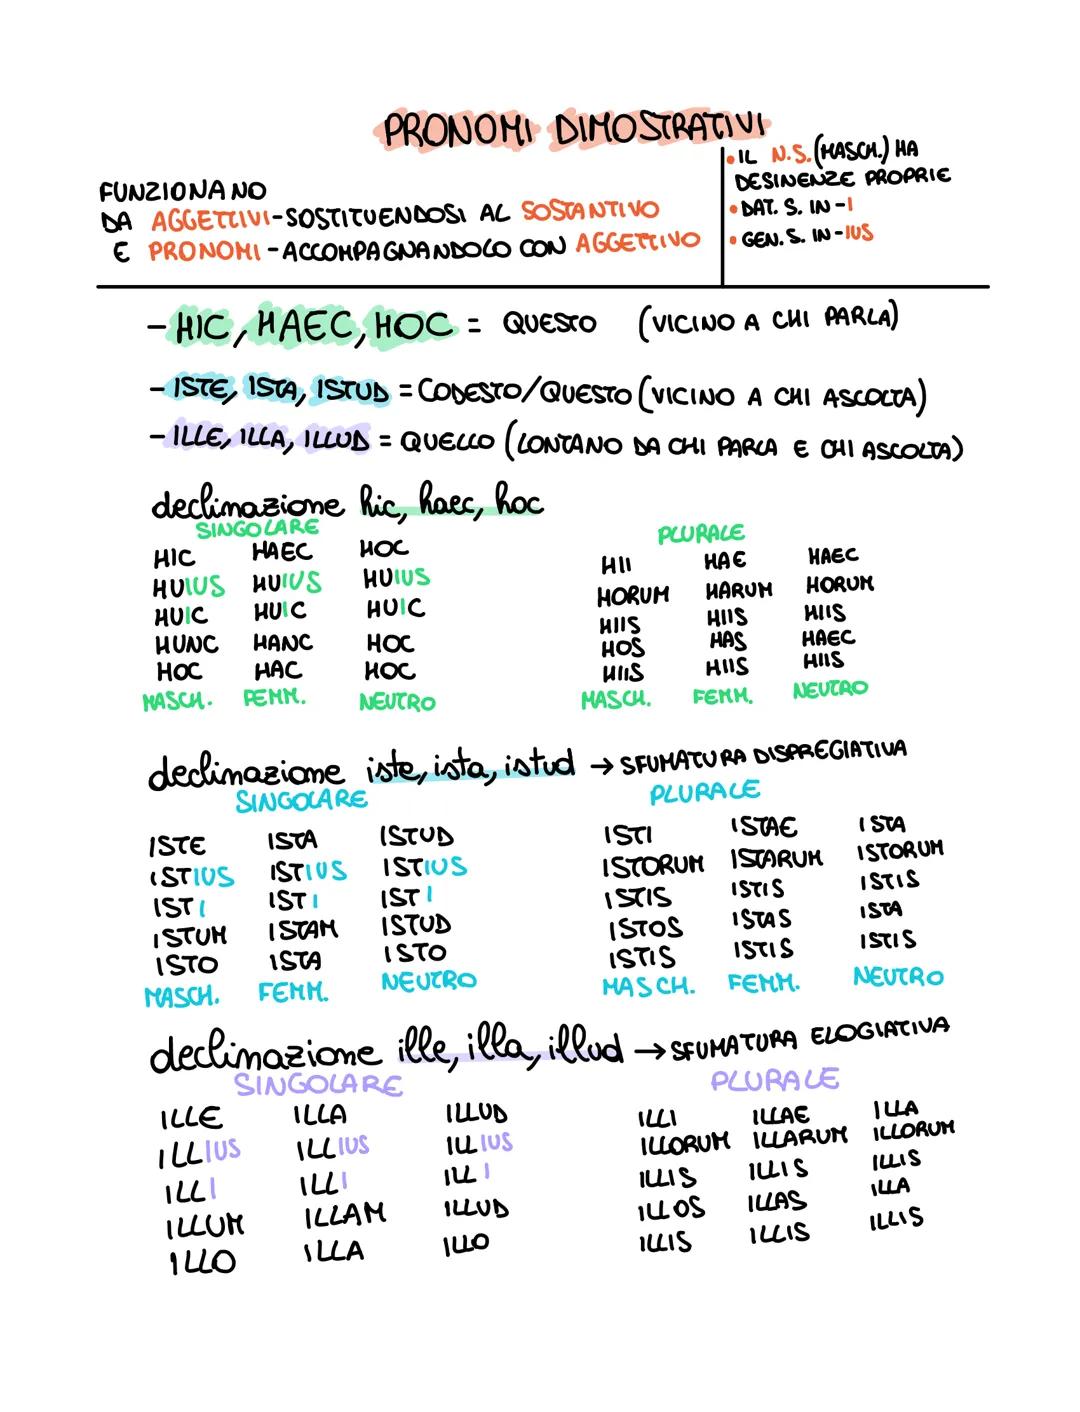 PRONOMI DIMOSTRATIVI
FUNZIONANO
DA AGGETTIVI-SOSTITUENDOSI AL SOSTANTIVO
E PRONOMI-ACCOMPAGNANDOLO CON AGGETTIVO
•IL N.S.(MASCH.) HA
DESINENZE PROPRIE
•DAT. S. IN -I
•GEN. S. IN -IUS
-HIC, HAEC, HOC = QUESTO (VICINO A CHI PARLA)
-ISTE, ISTA, ISTUD = CODESTO/QUESTO (VICINO A CHI ASCOLTA)
-ILLE, ILLA, ILLUD = QUELLO (LONTANO DA CHI PARLA E CHI ASCOLTA)
declinazione hic, haec, hoc
SINGOLARE PLURALE
HIC HAEC HOC HII HAE HAEC
HUIUS HUIUS HUIUS HORUM HARUM HORUM
HUIC HUIC HUIC HIIS HIIS HIIS
HUNC HANC HOC HOS HAS HAEC
HOC HAC HOC HIIS HIIS HIIS
MASCH. FEMM. NEUTRO MASCH. FEMM. NEUTRO
declinazione iste, ista, istud → SFUMATURA DISPREGIATIVA
SINGOLARE PLURALE
ISTE ISTA ISTUD ISTI ISTAE ISTA
ISTIUS ISTIUS ISTIUS ISTORUM ISTARUM ISTORUM
ISTI ISTI ISTI ISTIS ISTIS ISTIS
ISTUM ISTAM ISTUD ISTOS ISTAS ISTA
ISTO ISTA ISTO ISTIS ISTIS ISTIS
MASCH. FEMM. NEUTRO MASCH. FEMM. NEUTRO
declinazione ille, illa, illud → SFUMATURA ELOGIATIVA
SINGOLARE PLURALE
ILLE ILLA ILLUD ILLI ILLAE ILLA
ILLIUS ILLIUS ILLIUS ILLORUM ILLARUM ILLORUM
ILLI ILLI ILLI ILLIS ILLIS ILLIS
ILLUM ILLAM ILLUD ILLOS ILLAS ILLA
ILLO ILLA ILLO ILLIS ILLIS ILLIS